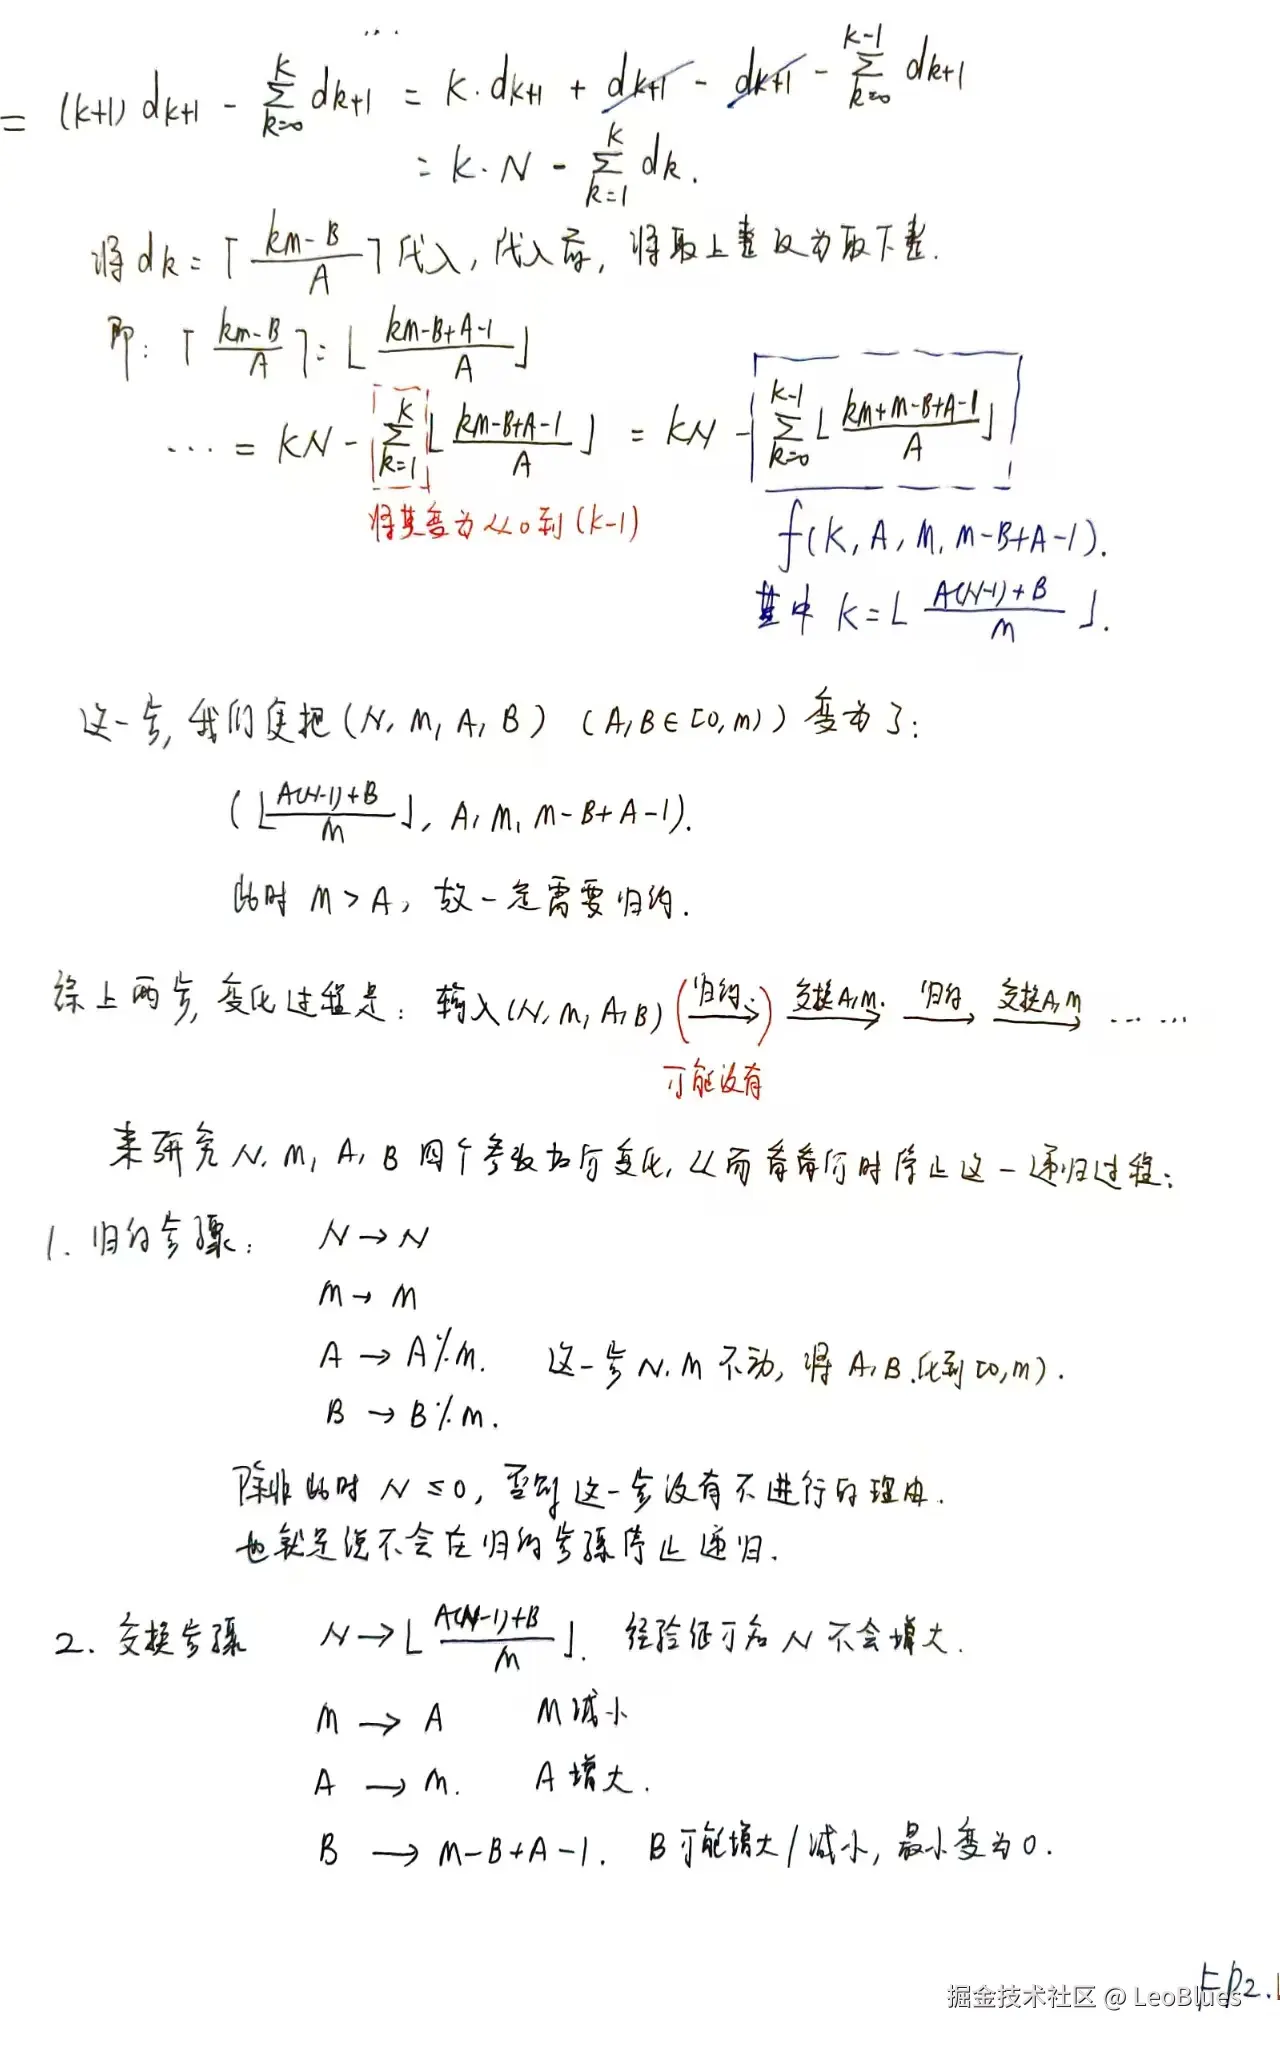 ...
= (k+1) dk+1 - ∑_{k=0}^{K} dk+1 = K·dk+1 + dk+1 - dk+1 - ∑_{k=0}^{K-1} dk+1
= K·N - ∑_{k=1}^{K} dk.
将 dk = ⌈(km-B)/A⌉ 代入, 代入后, 将取上整改为取下整.
即: ⌈(km-B)/A⌉ = ⌊(km-B+A-1)/A⌋
... = KN - ∑_{k=1}^{K} ⌊(km-B+A-1)/A⌋ = KN - ∑_{k=0}^{K-1} ⌊(km+m-B+A-1)/A⌋
将其变为从0到(k-1)
f(K, A, M, m-B+A-1).
其中 K = ⌊(A(N-1)+B)/m⌋.
这一步, 我们实把 (N, M, A, B) (A,B∈[0,m)) 变为了:
(⌊(A(N-1)+B)/m⌋, A, M, m-B+A-1).
此时 M > A, 故一定需要归约.
综上两步, 变化过程是: 输入(N, M, A, B) (归约→) 交换A,M→ 归约→ 交换A,M→ ......
可能没有
来研究 N, M, A, B 四个参数如何变化, 从而看看何时停止这一递归过程:
1. 归约步骤: N → N
M → M
A → A%M. 这一步 N, M 不动, 将 A, B 化到 [0, m).
B → B%M.
除非此时 N ≤ 0, 否则这一步没有不进行的理由.
也就是说不会在归约步骤停止递归.
2. 交换步骤 N → ⌊(A(N-1)+B)/m⌋. 经验证可知 N 不会增大.
M → A M减小
A → M. A增大.
B → M-B+A-1. B可能增大/减小, 最小变为0.
掘金技术社区 @ LeoBlues